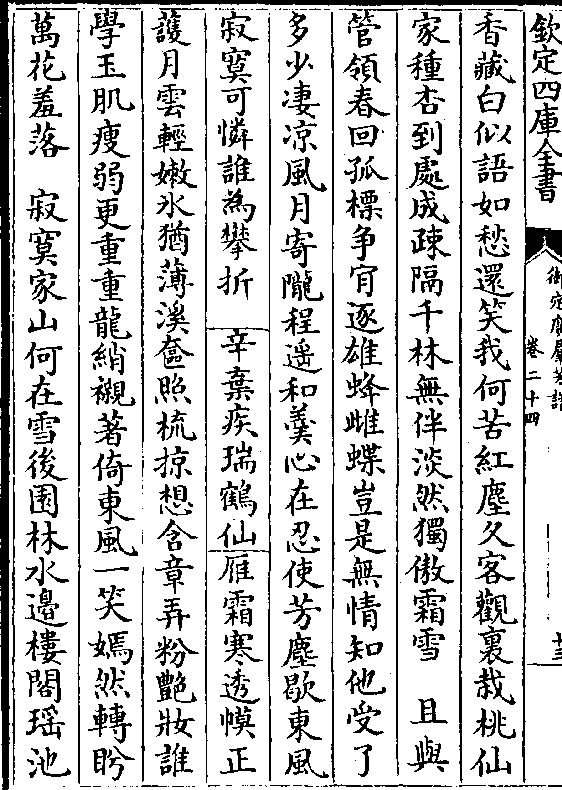 欽定四庫全書
御定廣羣芳譜
卷二十四
十三
香藏白似語如愁還笑我何苦紅塵久客觀裏栽桃仙
家種杏到處成疎隔千林無伴淡然獨傲霜雪　且與
管領春回孤標争肎逐雄蜂雌蝶豈是無情知他受了
多少凄凉風月寄隴程遥和羹心在忍使芳塵歇東風
寂寞可憐誰為攀折　辛棄疾瑞鶴仙　雁霜寒透幙正
護月雲輕嫩氷猶薄溪奩照梳掠想含章弄粉艶妝誰
學玉肌瘦弱更重重龍綃襯著倚東風一笑嫣然轉盻
萬花羞落　寂寞家山何在雪後園林水邉樓閣瑶池